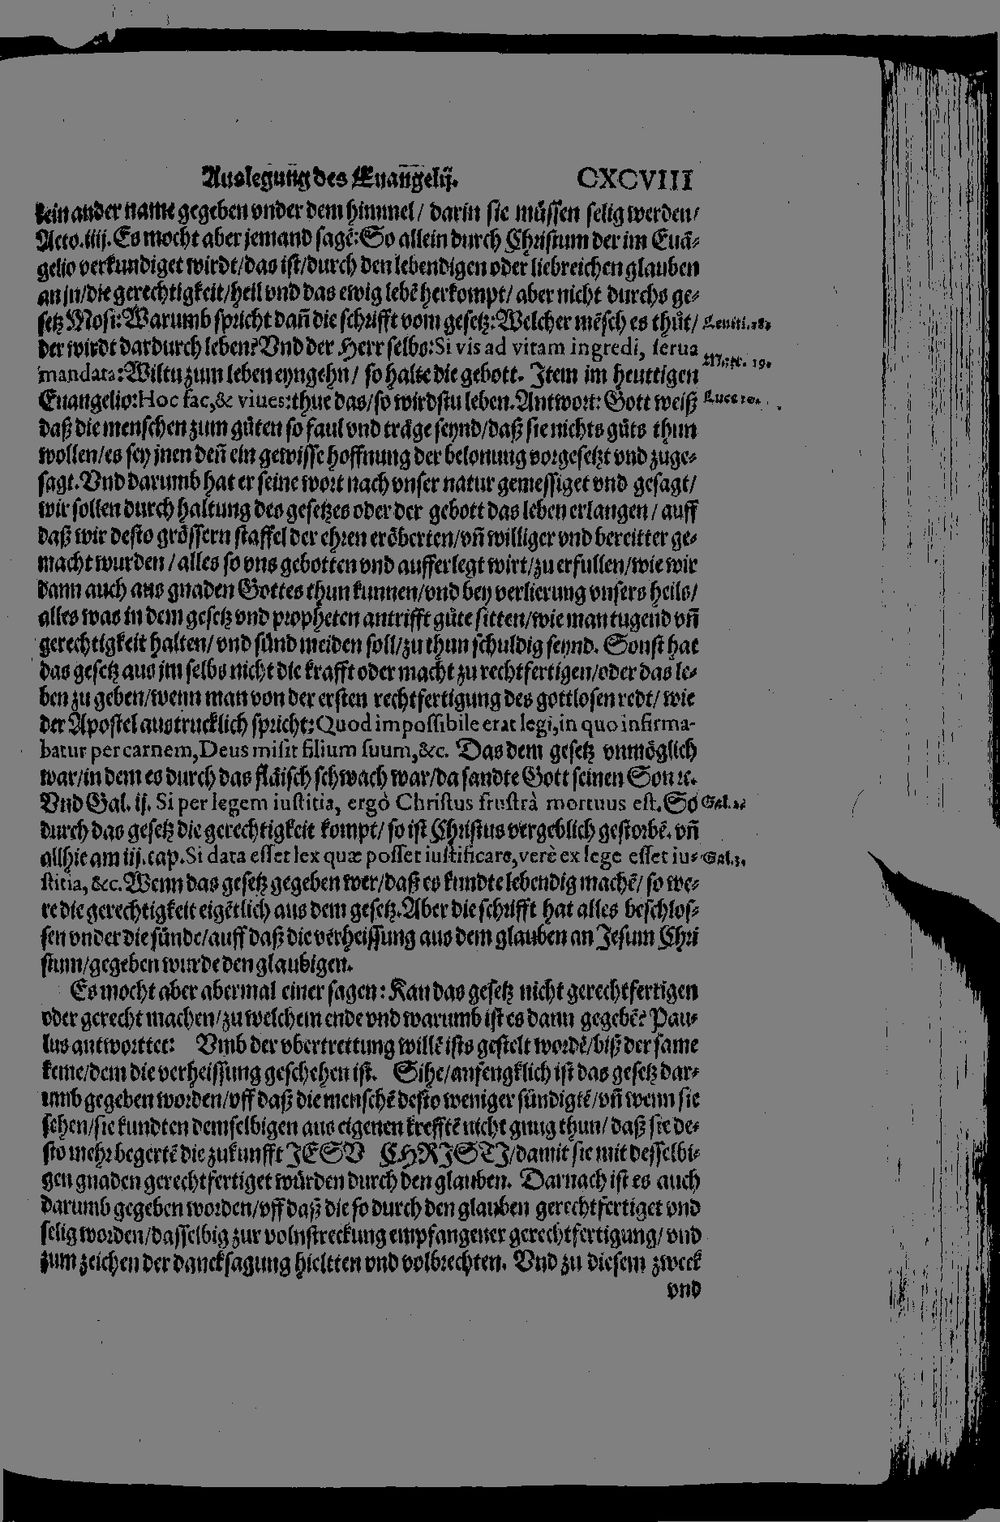 Auslegung des Euangelij. CXCVIII
kein ander name gegeben vnder dem himmel/ darin sie müssen selig werden/
Acto.iiij. Es mocht aber jemand sagē: So allein durch Christum der im Euā-
gelio verkundiget wirdt/das ist/durch den lebendigen oder liebreichen glauben
an jn/die gerechtigkeit/heil vnd das ewig lebē herkompt/ aber nicht durchs ge-
setz Mosi: Warumb spricht dañ die schrifft vom gesetz: Welcher mēsch es thůt/ Leuiti.18.
der wirdt dardurch leben? Vnd der Herr selbs: Si vis ad vitam ingredi, serua
mandata: Wiltu zum leben eyngehn/ so halte die gebott. Item im heuttigen Matt. 19.
Euangelio: Hoc fac, & viues: thue das/so wirdstu leben. Antwort: Gott weiß Luce 10.
daß die menschen zum gůten so faul vnd träge seynd/daß sie nichts gůts thun
wollen/es sey jnen deñ ein gewisse hoffnung der belonung vorgesetzt vnd zuge-
sagt. Vnd darumb hat er seine wort nach vnser natur gemessiget vnd gesagt/
wir sollen durch haltung des gesetzes oder der gebott das leben erlangen/ auff
daß wir desto grössern staffel der ehren eröberten/vñ williger vnd bereitter ge-
macht wurden/ alles so vns gebotten vnd aufferlegt wirt/zu erfullen/wie wir
dann auch aus gnaden Gottes thun kunnen/vnd bey verlierung vnsers heils/
alles was in dem gesetz vnd propheten antrifft gůte sitten/wie man tugend vñ
gerechtigkeit halten/ vnd sünd meiden soll/zu thun schuldig seynd. Sonst hat
das gesetz aus jm selbs nicht die krafft oder macht zu rechtfertigen/oder das le-
ben zu geben/wenn man von der ersten rechtfertigung des gottlosen redt/ wie
der Apostel austrucklich spricht: Quod impossibile erat legi, in quo infirma-
batur per carnem, Deus misit filium suum, &c. Das dem gesetz vnmöglich
war/in dem es durch das fläisch schwach war/da sandte Gott seinen Son ꝛc.
Vnd Gal. ij. Si per legem iustitia, ergò Christus frustrà mortuus est. So Gal. 2.
durch das gesetz die gerechtigkeit kompt/ so ist Christus vergeblich gestorbē. vñ
allhie am iij. cap. Si data esset lex quæ posset iustificare, verè ex lege esset iu- Gal.3.
stitia, &c. Wenn das gesetz gegeben wer/daß es kundte lebendig machē/ so we-
re die gerechtigkeit eigētlich aus dem gesetz. Aber die schrifft hat alles beschlos-
sen vnder die sünde/auff daß die verheissung aus dem glauben an Jesum Chri
stum/gegeben wurde den glaubigen.
Es mocht aber abermal einer sagen: Kan das gesetz nicht gerechtfertigen
oder gerecht machen/zu welchem ende vnd warumb ist es dann gegebē? Pau-
lus antworttet: Vmb der vbertrettung willē ists gestelt wordē/biß der same
keme/dem die verheissung geschehen ist. Sihe/anfengklich ist das gesetz dar-
umb gegeben worden/vff daß die menschē desto weniger sündigtē/vñ wenn sie
sehen/sie kundten demselbigen aus eigenen krefftē nicht gnug thun/ daß sie de-
sto mehr begertē die zukunfft JESV CHRISTI/damit sie mit desselbi-
gen gnaden gerechtfertiget würden durch den glauben. Darnach ist es auch
darumb gegeben worden/vff daß die so durch den glauben gerechtfertiget vnd
selig worden/dasselbig zur volnstreckung empfangener gerechtfertigung/ vnd
zum zeichen der dancksagung hieltten vnd volbrechten. Vnd zu diesem zweck
vnd